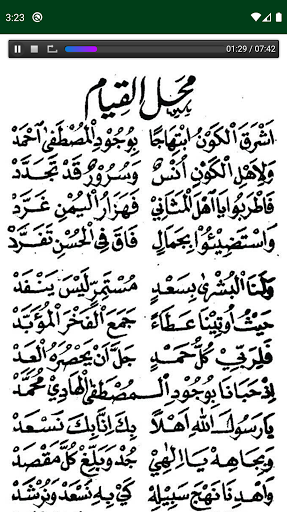 3:23
01:29 / 07:42
محل القيام
اَشْرَقَ الْكَوْنُ ابْتِهَاجًا بِوُجُودِ الْمُصْطَفَى احْمَدْ
وَلِاَهْلِ الْكَوْنِ اُنْسٌ وَسُرُورٌ قَدْ تَجَدَّدْ
فَاطْرَبُوا يَا اَهْلَ الْمَثَانِي فَهَزَارُ الْيُمْنِ غَرَّدْ
وَاسْتَضِيئُوا بِجَمَالٍ فَاقَ فِي الْحُسْنِ تَفَرَّدْ
وَلَنَا الْبُشْرٰى بِسَعْدٍ مُسْتَمِرٍّ لَيْسَ يَنْفَدْ
حَيْثُ اُوتِيْنَا عَطَاءً جَمَعَ الْفَخْرَ الْمُؤَبَّدْ
فَلِرَبِّي كُلُّ حَمْدٍ جَلَّ اَنْ يَحْصُرَهُ الْعَدْ
اِذْ حَبَانَا بِوُجُودِ الْمُصْطَفَى الْهَادِيْ مُحَمَّدْ
يَارَسُوْلَ اللهِ اَهْلًا بِكَ اِنَّا بِكَ نَسْعَدْ
وَبِجَاهِهْ يَا اِلٰهِيْ جُدْ وَبَلِّغْ كُلَّ مَقْصَدْ
وَاهْدِنَا نَهْجَ سَبِيْلِهْ كَيْ بِهِ نَسْعَدْ وَنُرْشَدْ